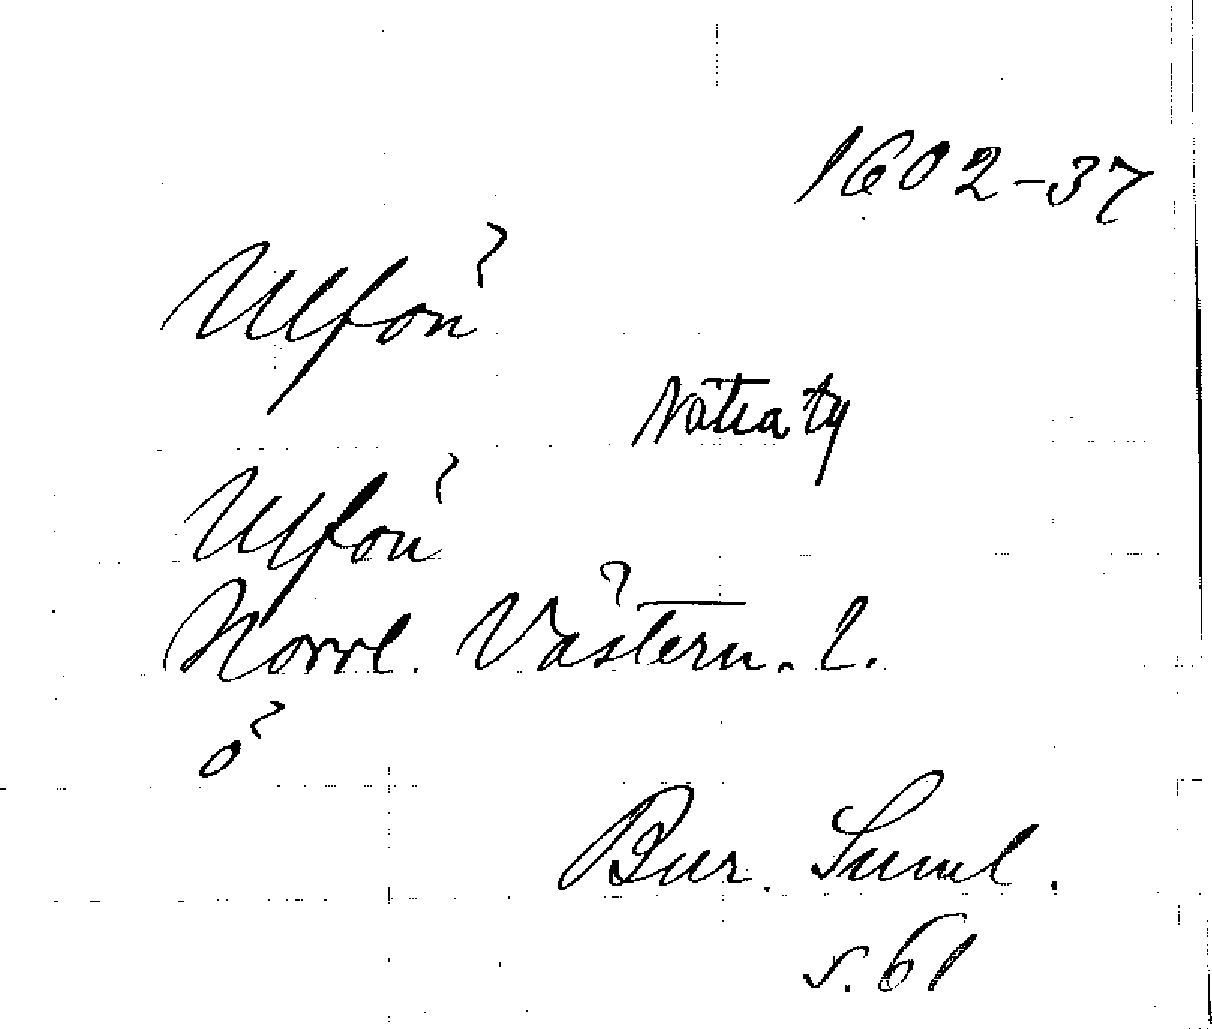 1602-37
Ulfön
Nätra ty
Ulfön
Norrl. Västern. l.
ö
Bur. Suml.
s. 61